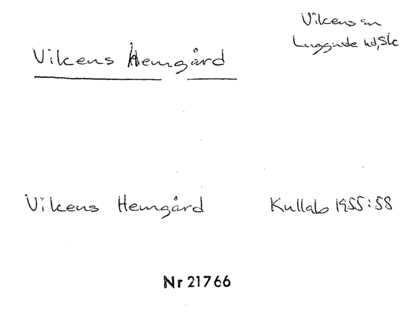 Vikens sn
Luggude hd, Sk
Vikens Hemgård
Vikens Hemgård Kullab 1955:58
Nr 21766